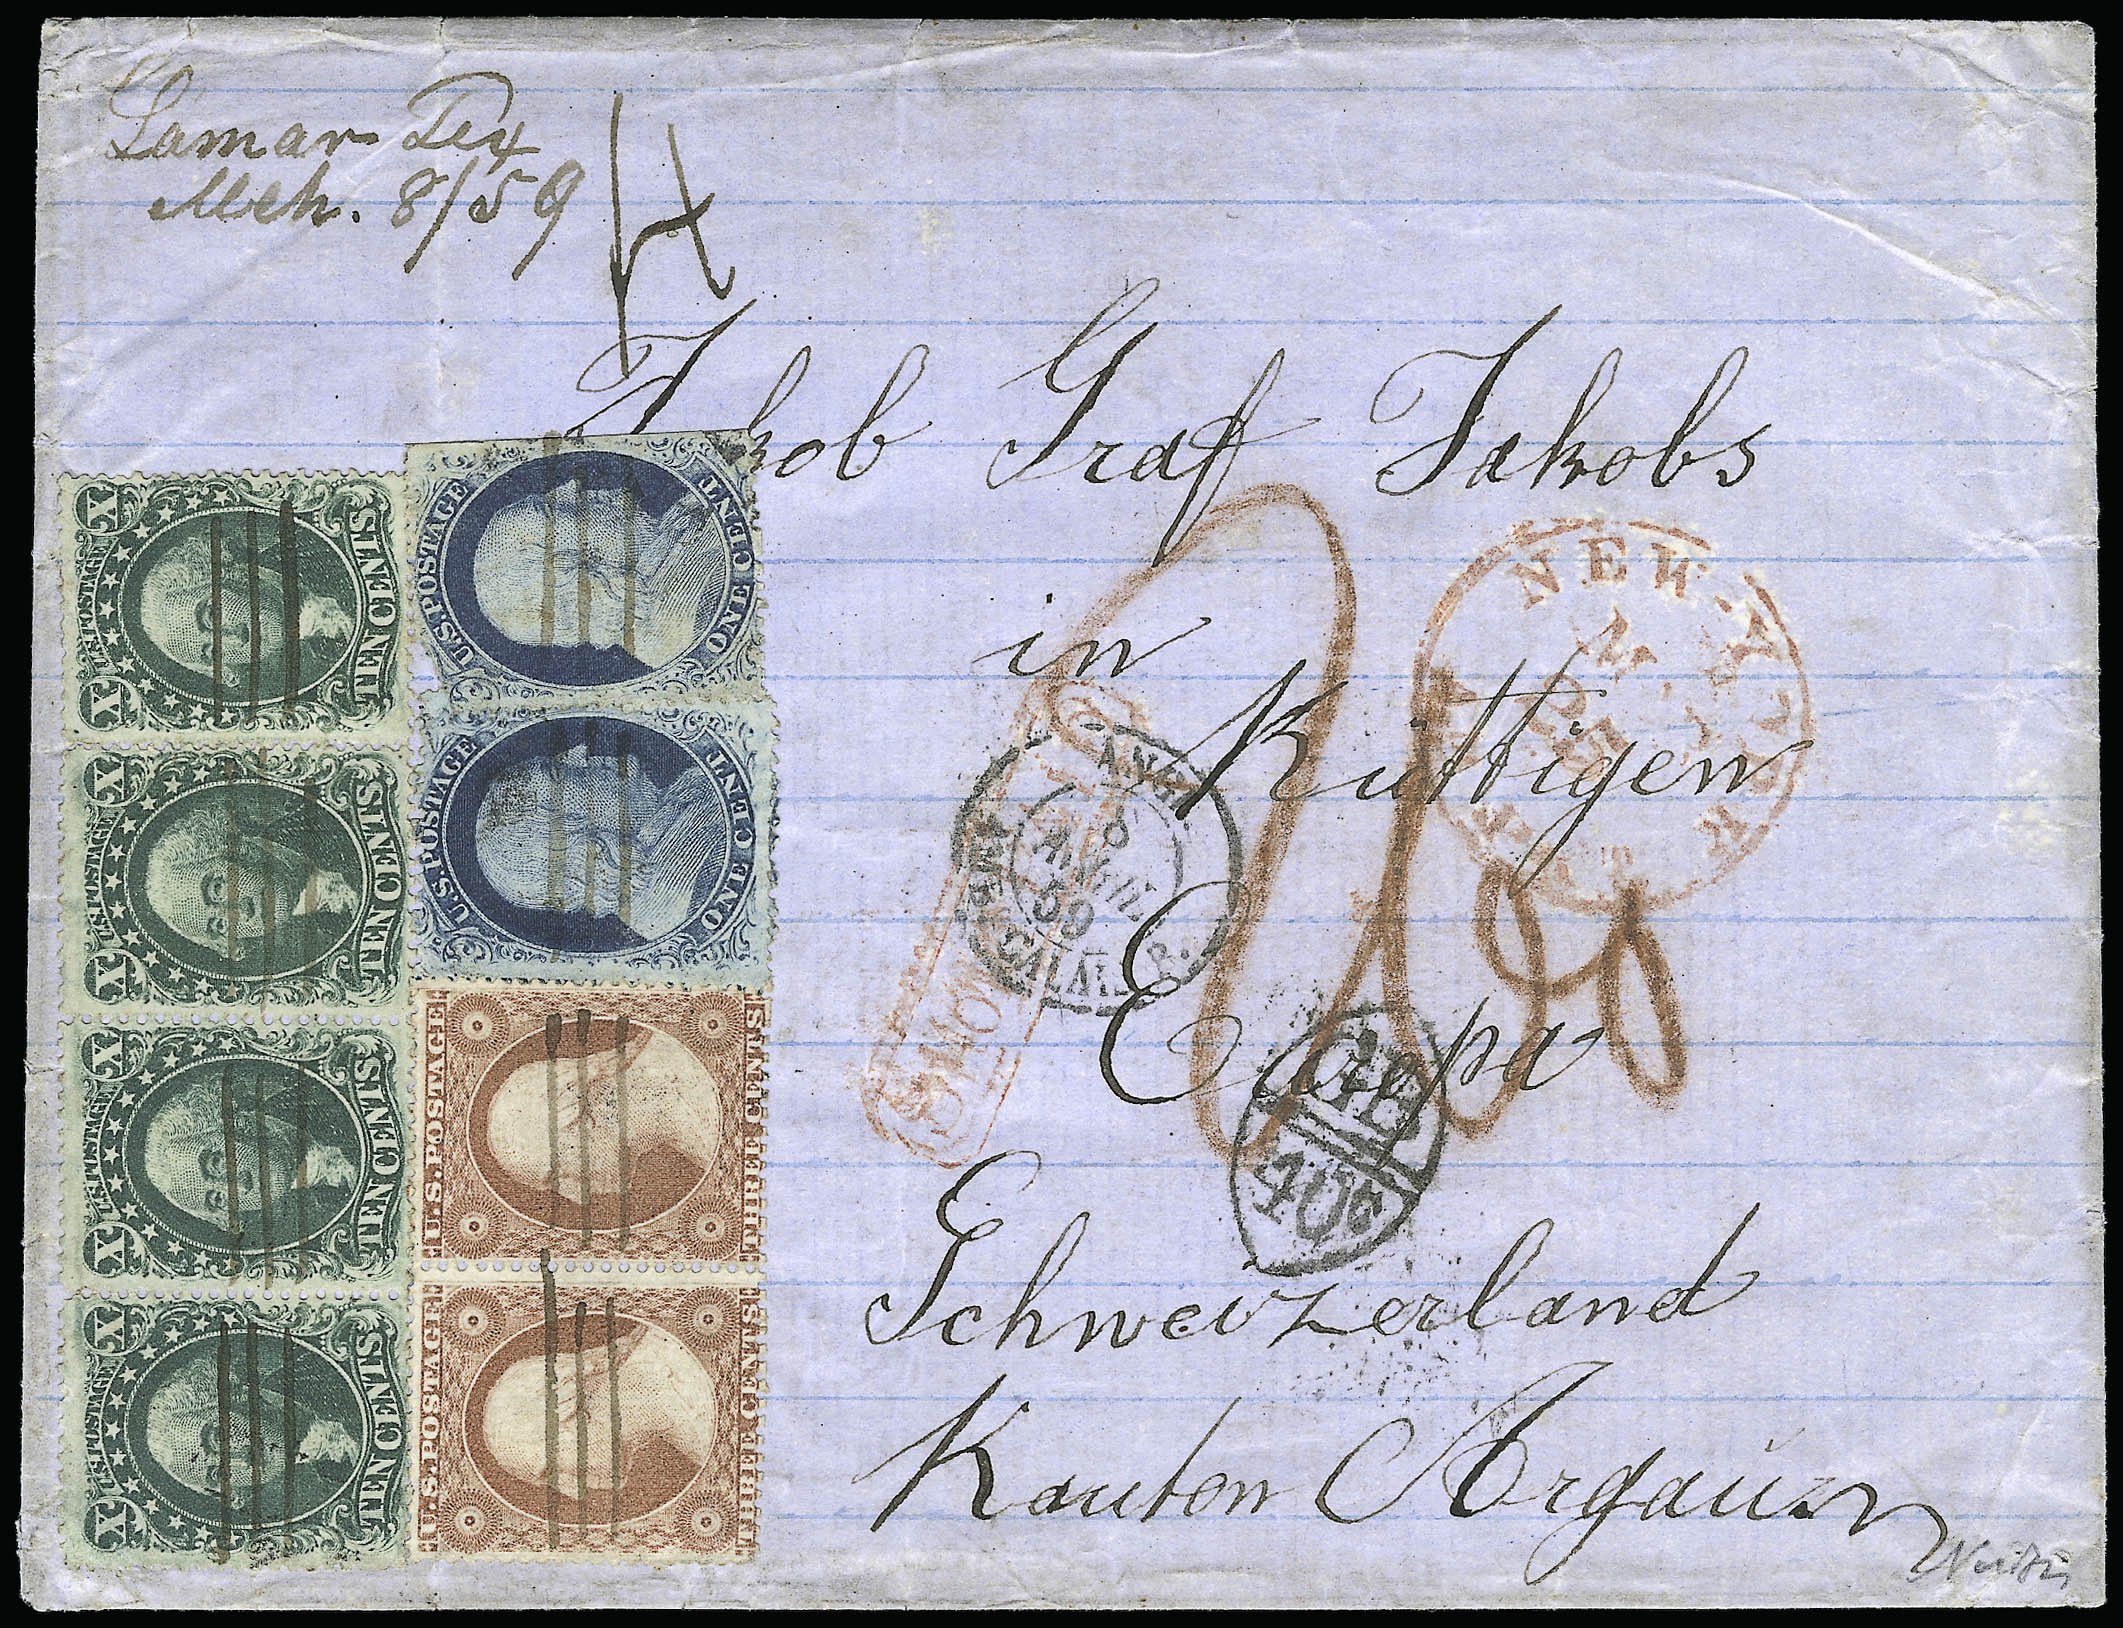 Lamar Tex
Mch. 8/59
Jakob Graf Jakobs
in
Küttigen
Eurpa
Schweizerland
Kanton Argaü
U.S. POSTAGE
ONE CENT
U.S. POSTAGE
ONE CENT
U.S. POSTAGE
THREE CENTS
U.S. POSTAGE
THREE CENTS
X U.S. POSTAGE X
TEN CENTS
X U.S. POSTAGE X
TEN CENTS
X U.S. POSTAGE X
TEN CENTS
X U.S. POSTAGE X
TEN CENTS
NEW-YORK
ANGL.
AVRIL
59
AMB. CALAIS
GB
40c